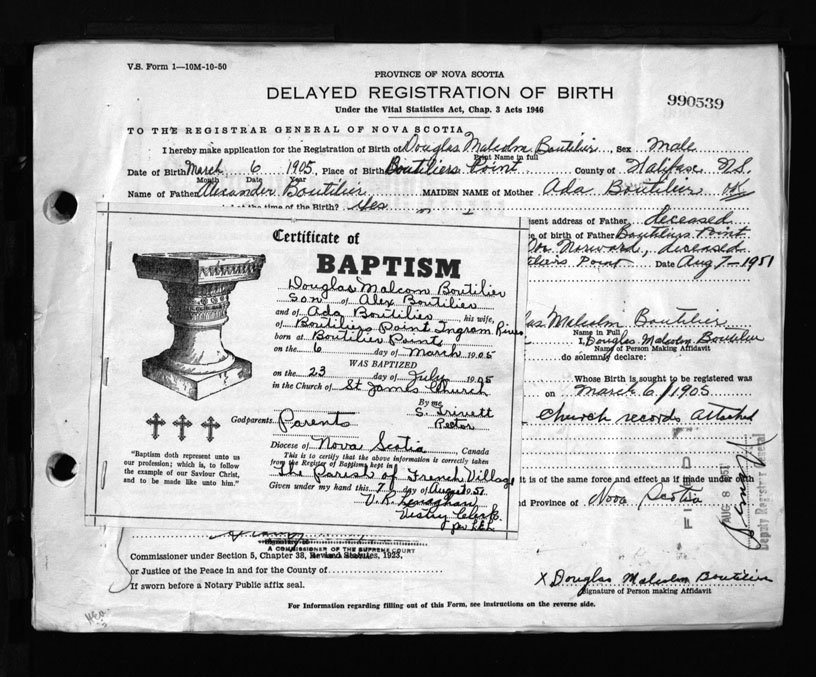 V.S. Form 1—10M-10-50
PROVINCE OF NOVA SCOTIA
DELAYED REGISTRATION OF BIRTH
990539
Under the Vital Statistics Act, Chap. 3 Acts 1946
TO THE REGISTRAR GENERAL OF NOVA SCOTIA
I hereby make application for the Registration of Birth of Douglas Malcolm Boutilier Sex Male
Print Name in full
Date of Birth March 6 1905, Place of Birth Boutiliers Point County of Halifax N.S.
Month Date Year
Name of Father Alexander Boutilier MAIDEN NAME of Mother Ada Boutilier
at the time of the Birth? Yes
sent address of Father deceased
of birth of Father Boutiliers Point
deceased
tiliers Point Date Aug 7—1951
Certificate of
BAPTISM
Douglas Malcom Boutilier
Son of Alex Boutilier
and of Ada Boutilier, his wife,
of Boutiliers Point Ingram River
born at Boutilier Point
on the 6 day of March 1905
WAS BAPTIZED
on the 23 day of July 1905
in the Church of St James Church
By me
S. Trivett
Rector
Godparents Parents
Diocese of Nova Scotia, Canada
This is to certify that the above information is correctly taken
from the Register of Baptisms kept in
The Parish of French Village
Given under my hand this 7 day of August 1951
Vestry Clerk
"Baptism doth represent unto us
our profession; which is, to follow
the example of our Saviour Christ,
and to be made like unto him."
las Malcolm Boutilier
Name in Full
I, Douglas Malcolm Boutilier
Name of Person Making Affidavit
do solemnly declare:
Whose Birth is sought to be registered was
on March 6/1905
Church records attached
it is of the same force and effect as if made under
nd Province of Nova Scotia
FILED
AUG 8 1951
Deputy Registrar General
A COMMISSIONER OF THE SUPREME COURT
Commissioner under Section 5, Chapter 38, Revised Statutes, 1923,
or Justice of the Peace in and for the County of
If sworn before a Notary Public affix seal.
X Douglas Malcolm Boutilier
Signature of Person making Affidavit
For Information regarding filling out of this Form, see instructions on the reverse side.